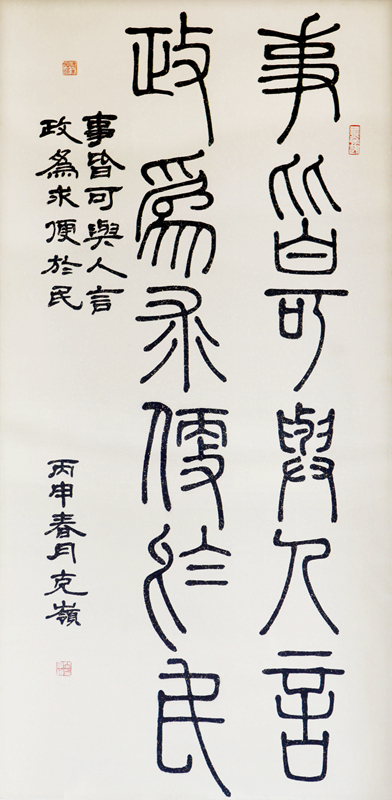 事皆可與人言
政為求便於民
事皆可與人言
政為求便於民
丙申春月克嶺